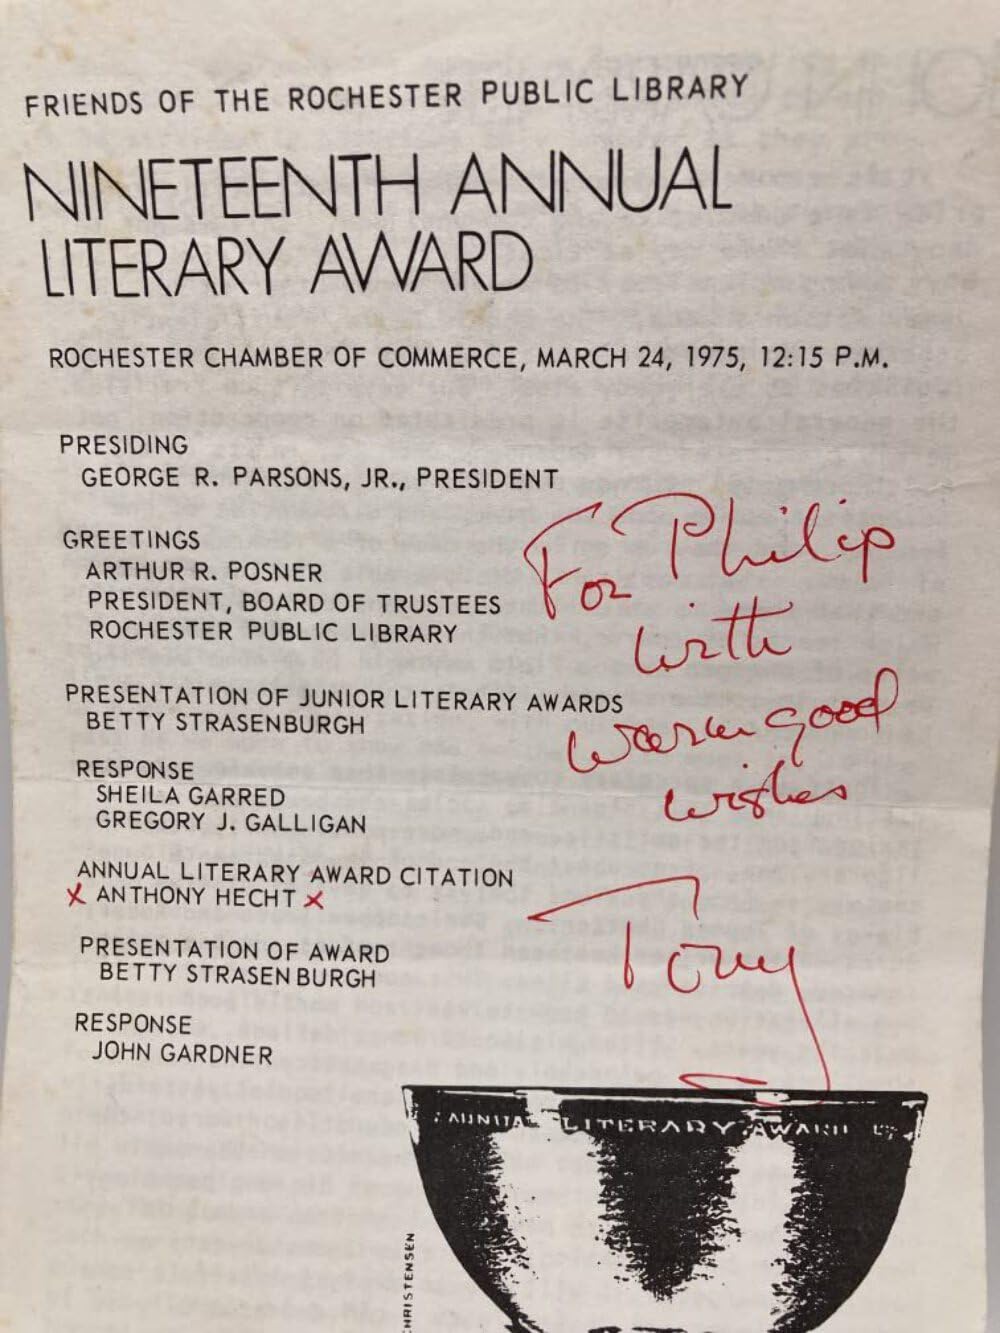 FRIENDS OF THE ROCHESTER PUBLIC LIBRARY
NINETEENTH ANNUAL
LITERARY AWARD
ROCHESTER CHAMBER OF COMMERCE, MARCH 24, 1975, 12:15 P.M.
PRESIDING
GEORGE R. PARSONS, JR., PRESIDENT
GREETINGS
ARTHUR R. POSNER
PRESIDENT, BOARD OF TRUSTEES
ROCHESTER PUBLIC LIBRARY
PRESENTATION OF JUNIOR LITERARY AWARDS
BETTY STRASENBURGH
RESPONSE
SHEILA GARRED
GREGORY J. GALLIGAN
ANNUAL LITERARY AWARD CITATION
X ANTHONY HECHT X
PRESENTATION OF AWARD
BETTY STRASENBURGH
RESPONSE
JOHN GARDNER
For Philip
with
warm good
wishes
Tony
LITERARY AWARD
HRISTENSEN